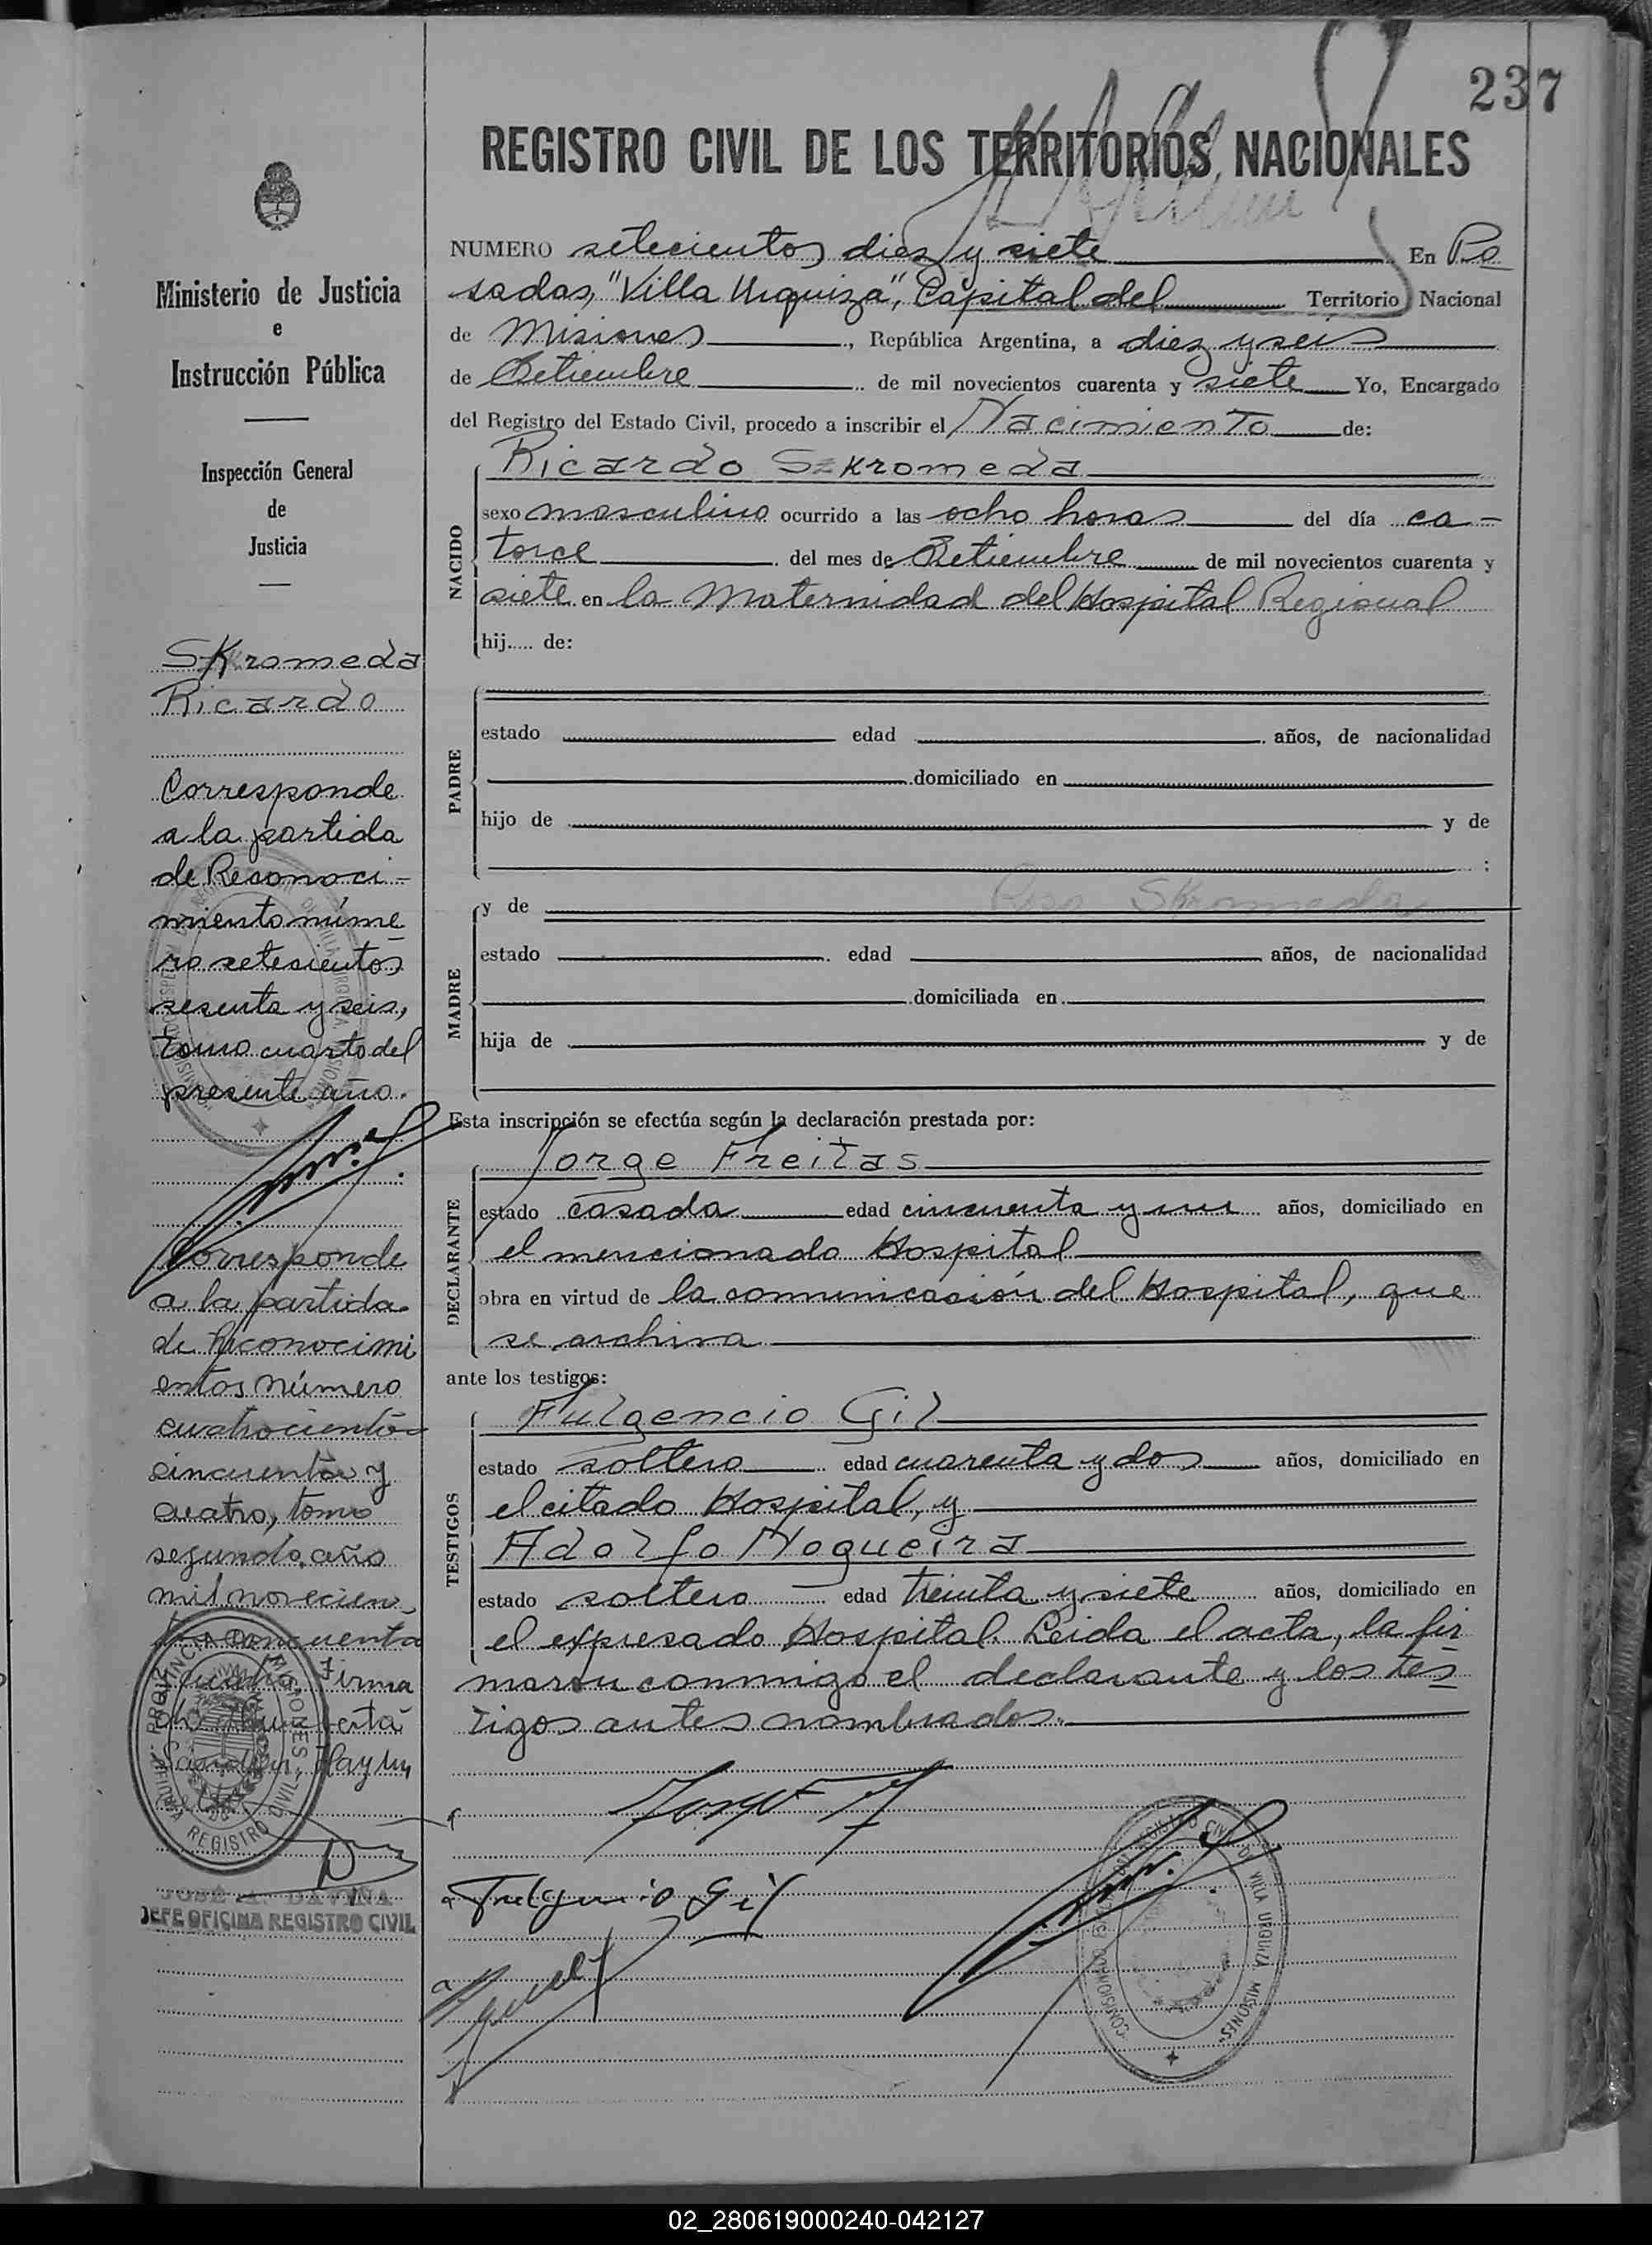 237
REGISTRO CIVIL DE LOS TERRITORIOS NACIONALES
Ministerio de Justicia
e
Instrucción Pública
Inspección General
de
Justicia
SKromeda
Ricardo
Corresponde
a la partida
de Reconoci-
miento núme
ro setecientos
sesenta y seis,
tomo cuarto del
presente año.
Corresponde
a la partida
de Reconocimi
entos número
cuatrocientos
cincuenta y
cuatro, tomo
segundo, año
mil novecien
cuenta
Firma
PROVINCIA DE MISIONES
REGISTRO CIVIL
JOSÉ A. DAVIÑA
JEFE OFICINA REGISTRO CIVIL
NUMERO setecientos diez y siete En Po
sadas, "Villa Urquiza", Capital del Territorio Nacional
de Misiones, República Argentina, a diez y seis
de Setiembre de mil novecientos cuarenta y siete Yo, Encargado
del Registro del Estado Civil, procedo a inscribir el Nacimiento de:
NACIDO
Ricardo Szkromeda
sexo masculino ocurrido a las ocho horas del día ca-
torce del mes de Setiembre de mil novecientos cuarenta y
siete en la Maternidad del Hospital Regional
hij..... de:
PADRE
estado edad años, de nacionalidad
domiciliado en
hijo de y de
:
MADRE
y de Rosa Skromeda
estado edad años, de nacionalidad
domiciliada en
hija de y de
Esta inscripción se efectúa según la declaración prestada por:
DECLARANTE
Jorge Freitas
estado casado edad cincuenta y un años, domiciliado en
el mencionado Hospital
obra en virtud de la comunicación del Hospital, que
se archiva
ante los testigos:
TESTIGOS
Fulgencio Gil
estado soltero edad cuarenta y dos años, domiciliado en
el citado Hospital, y
Adolfo Nogueira
estado soltero edad treinta y siete años, domiciliado en
el expresado Hospital. Leida el acta, la fir
maron conmigo el declarante y los tes
tigos antes nombrados.
Jorge F
Fulgencio Gil
REGISTRO CIVIL DE VILLA URQUIZA MISIONES
02_280619000240-042127